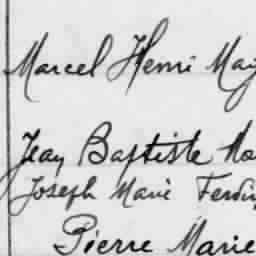 Marcel Henri
Jean Baptiste
Joseph Marie
Pierre Marie